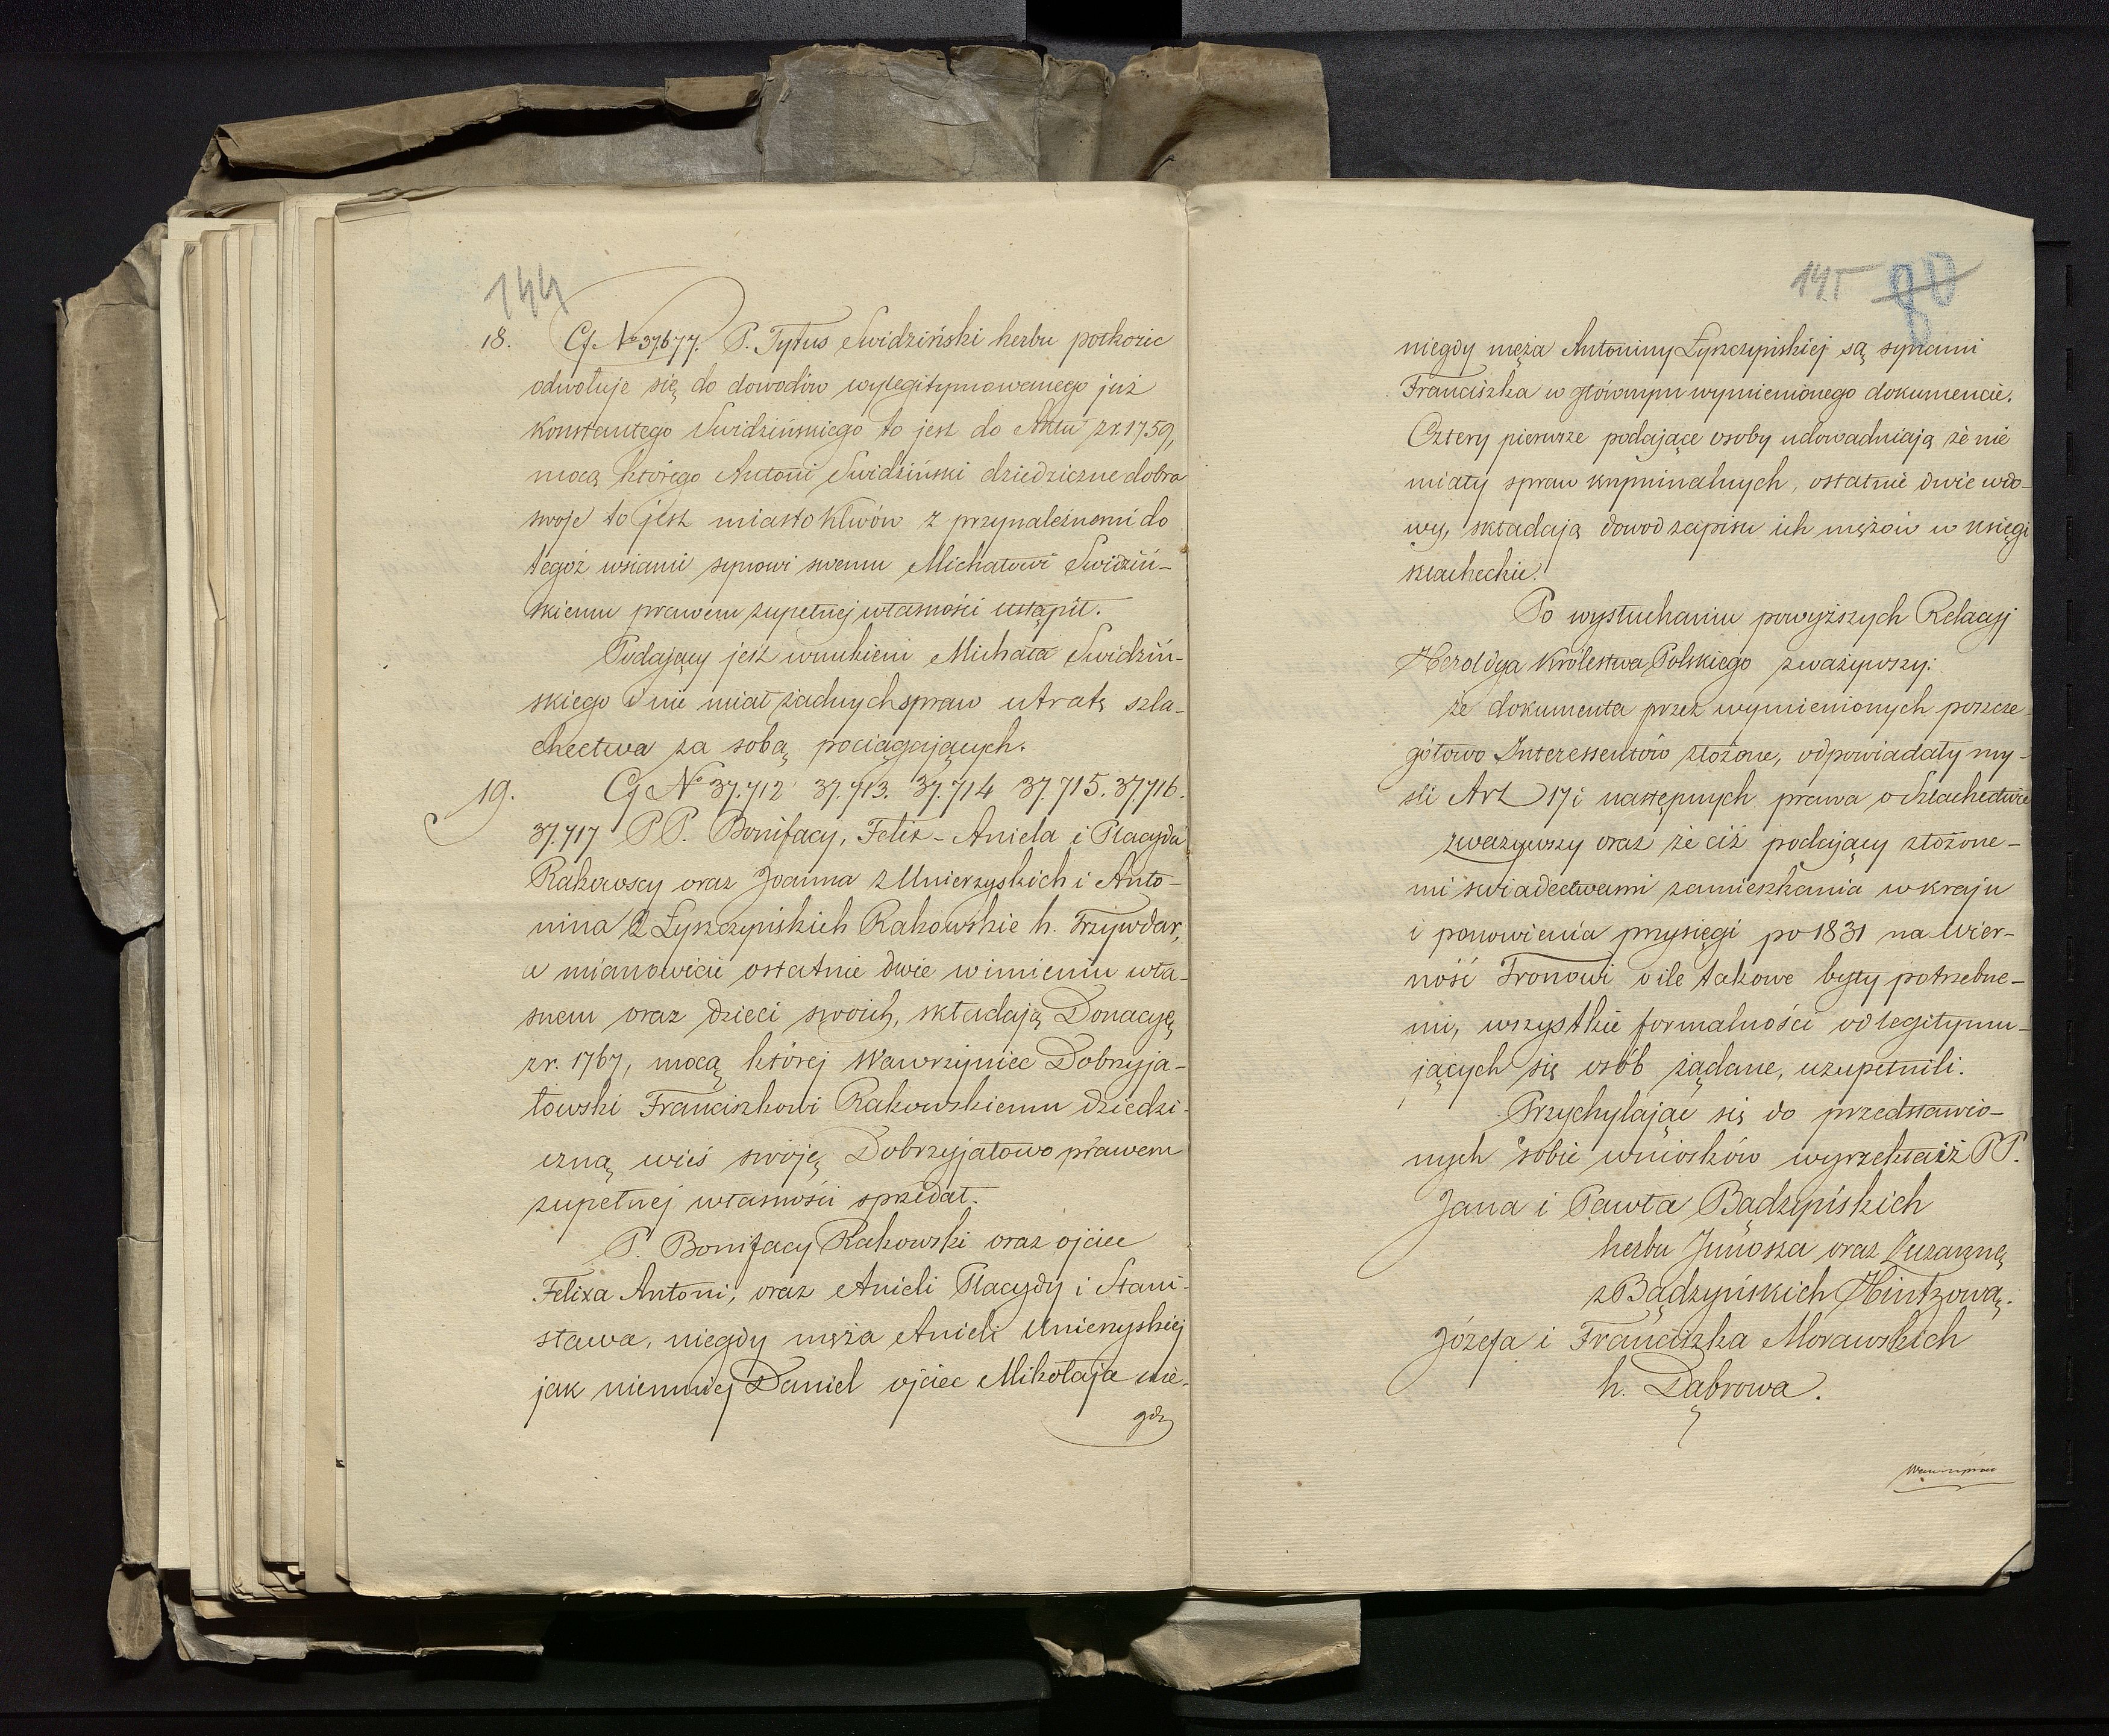 144
18. Cf № 37677. P. Tytus Swidziński herbu połkozic
odwołuje się do dowodów wylegitymowanego już
Konstantego Swidzińskiego to jest do Aktu z r. 1759,
mocą którego Antoni Swidziński dziedziczne dobra
swoje to jest miasto Klwów z przynależnemi do
tegoż wsiami synowi swemu Michałowi Swidziń-
skiemu prawem zupełnej własności ustąpił.
Podający jest wnukiem Michała Swidziń-
skiego i nie miał żadnych spraw utratę szla-
chectwa za sobą pociągających.
19. Cf № 37.712 37.713. 37.714 37.715. 37.716.
37.717 PP. Bonifacy, Felix - Aniela i Placyda
Rakowscy oraz Joanna z Unierzyskich i Anto-
nina z Łyszczyńskich Rakowskie h. Trzywdar,
a mianowicie ostatnie dwie w imieniu wła-
snem oraz dzieci swoich, składają Donacyę
z r. 1767, mocą której Wawrzyniec Dobrzyja-
łowski Franciszkowi Rakowskiemu dziedzi-
czną wieś swoję Dobrzyjałowo prawem
zupełnej własności sprzedał.
P. Bonifacy Rakowski oraz ojciec
Felixa Antoni, oraz Anieli Placydy i Stani-
sława, niegdy męża Anieli Unierzyskiej
jak niemniej Daniel ojciec Mikołaja nie-
gdy
145 80
niegdy męża Antoniny Łyszczyńskiej są synami
Franciszka w głównym wymienionego dokumencie.
Cztery pierwsze podające osoby udowadniają że nie
miały spraw kryminalnych, ostatnie dwie wdo-
wy, składają dowod zapisu ich mężów w księgi
szlacheckie.
Po wysłuchaniu powyższych Relacyj
Heroldya Królestwa Polskiego zważywszy:
że dokumenta przez wymienionych poszcze-
gółowo Interessentów złożone, odpowiadały my-
śli Art 17 i następnych prawa o Szlachectwie
zważywszy oraz że ciż podający złożone-
mi świadectwami zamieszkania w kraju
i ponowienia przysięgi po 1831 na wier-
ność Tronowi o ile takowe były potrzebne-
mi, wszystkie formalności od legitymu-
jących się osób żądane, uzupełnili.
Przychylając się do przedstawio-
nych sobie wniosków wyrzekła iż PP.
Jana i Pawła Bądzyńskich
herbu Junosza oraz Zuzannę
z Bądzyńskich Hintzową.
Józefa i Franciszka Morawskich
h. Dąbrowa.